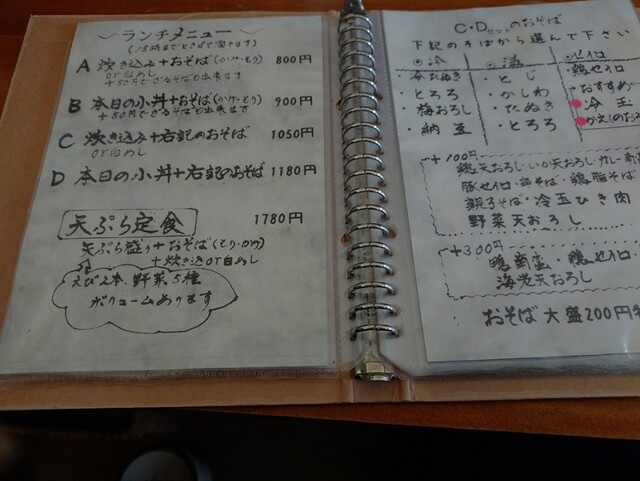 ランチメニュー
A 炊き込み+おそば(かけ・もり) 800円
or白めし
+50円でざるそば出来ます
B 本日の小丼+おそば(かけ・もり) 900円
+50円でざるそば出来ます
C 炊き込み+右記のおそば 1050円
or白めし
D 本日の小丼+右記のおそば 1180円
天ぷら定食 1780円
天ぷら盛り+おそば(もり・かけ)
+炊き込or白めし
えび2本、野菜5種
ボリュームあります
C・Dセットのおそば
下記のそばから選んで下さい
冷 温 セイロ
・冷たぬき
・とろろ
・梅おろし
・納豆
・とじ
・かしわ
・たぬき
・とろろ
・鶏セイロ
・おすすめ
冷玉
+100円
鶏天おろし・いか天おろし・カレー
豚セイロ・
親子そば・冷玉ひき肉
野菜天おろし
+300円
鴨南蛮・鴨セイロ・
海老天おろし
おそば大盛200円